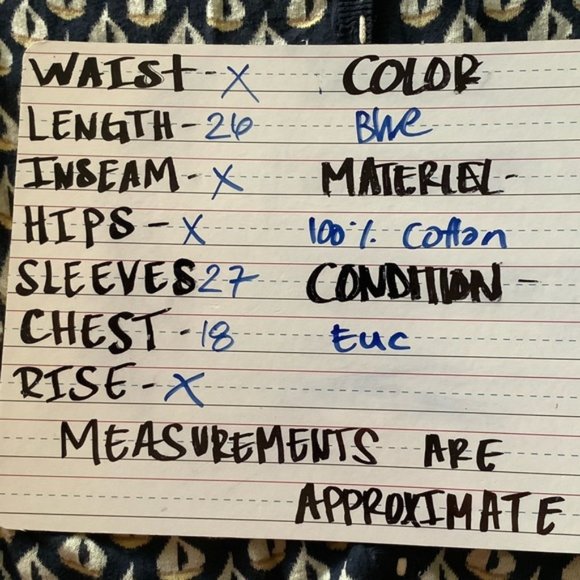 WAIST - X COLOR
LENGTH - 26 Blue
INSEAM - X MATERIEL -
HIPS - X 100% Cotton
SLEEVES 27 CONDITION -
CHEST - 18 Euc
RISE - X
MEASUREMENTS ARE
APPROXIMATE